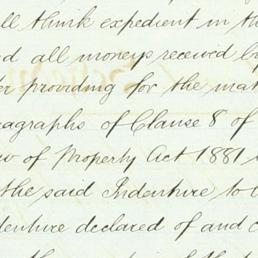 ll think expedient in th
d all moneys received by
r providing for the mat
ragraphs of Clause 8 of
w of Property Act 1881
the said Indenture to
denture declared of and c